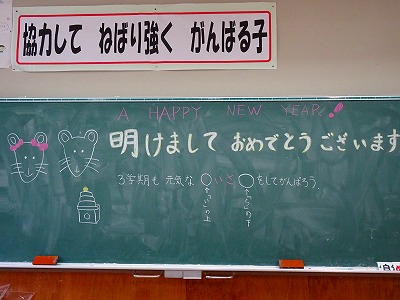 協力して ねばり強く がんばる子
A HAPPY NEW YEAR!!
明けまして おめでとうございます
3学期も 元気な○いさ○をしてがんばろう。